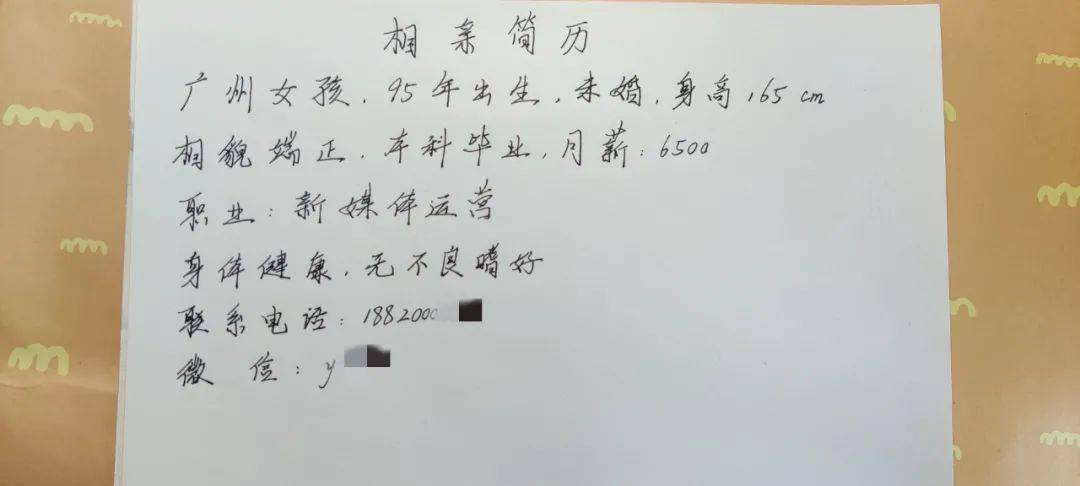 相亲简历
广州女孩，95年出生，未婚，身高165cm
相貌端正，本科毕业，月薪：6500
职业：新媒体运营
身体健康，无不良嗜好
联系电话：1882000
微信：y